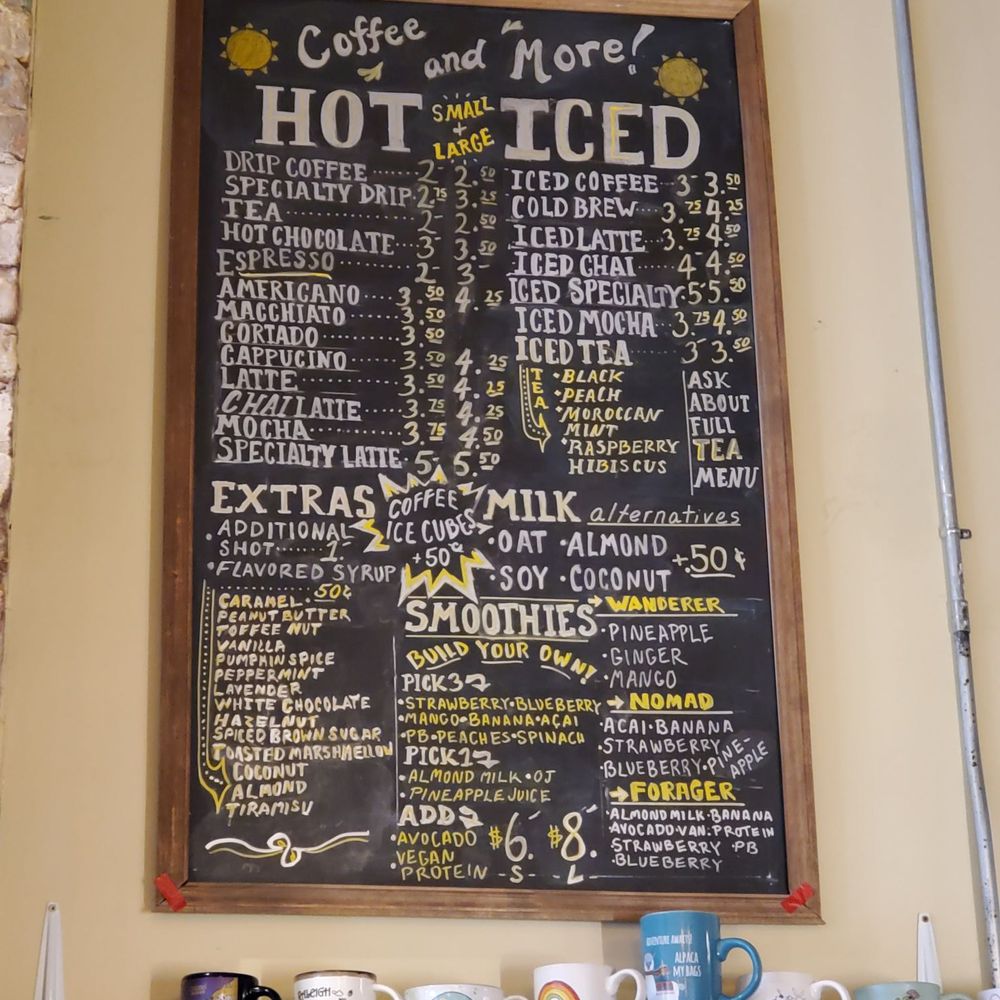 Coffee and "More!
HOT SMALL + LARGE ICED
DRIP COFFEE ...... 2- 2.50
SPECIALTY DRIP. 2.75 3.25
TEA ............ 2- 2.50
HOT CHOCOLATE ... 3- 3.50
ESPRESSO ........ 2- 3-
AMERICANO .... 3.50 4.25
MACCHIATO .... 3.50
CORTADO ...... 3.50
CAPPUCINO .... 3.50 4.25
LATTE ........ 3.50 4.25
CHAI LATTE .... 3.75 4.25
MOCHA ........ 3.75 4.50
SPECIALTY LATTE. 5- 5.50
ICED COFFEE .. 3- 3.50
COLD BREW ... 3.75 4.25
ICED LATTE ... 3.75 4.50
ICED CHAI .... 4- 4.50
ICED SPECIALTY. 5- 5.50
ICED MOCHA .. 3.75 4.50
ICED TEA ..... 3- 3.50
TEA
• BLACK
• PEACH
• MOROCCAN
MINT
• RASPBERRY
HIBISCUS
ASK
ABOUT
FULL
TEA
MENU
EXTRAS
• ADDITIONAL
SHOT ...... 1.-
• FLAVORED SYRUP
........... 50¢
CARAMEL
PEANUT BUTTER
TOFFEE NUT
VANILLA
PUMPKIN SPICE
PEPPERMINT
LAVENDER
WHITE CHOCOLATE
HAZELNUT
SPICED BROWN SUGAR
TOASTED MARSHMELLOW
COCONUT
ALMOND
TIRAMISU
COFFEE
ICE CUBES
+50¢
MILK alternatives
• OAT • ALMOND
• SOY • COCONUT
+.50¢
SMOOTHIES
BUILD YOUR OWN!
PICK 3
• STRAWBERRY • BLUEBERRY
• MANGO • BANANA • AÇAI
• PB • PEACHES • SPINACH
PICK 1
• ALMOND MILK • OJ
• PINEAPPLE JUICE
ADD
• AVOCADO
VEGAN
• PROTEIN
$6.- $8.-
-S- L-
→ WANDERER
• PINEAPPLE
• GINGER
• MANGO
→ NOMAD
• ACAI • BANANA
• STRAWBERRY
• BLUEBERRY • PINE-
APPLE
→ FORAGER
• ALMOND MILK • BANANA
• AVOCADO • VAN. PROTEIN
STRAWBERRY • PB
• BLUEBERRY
ADVENTURE AWAITS!
ALPACA
MY BAGS